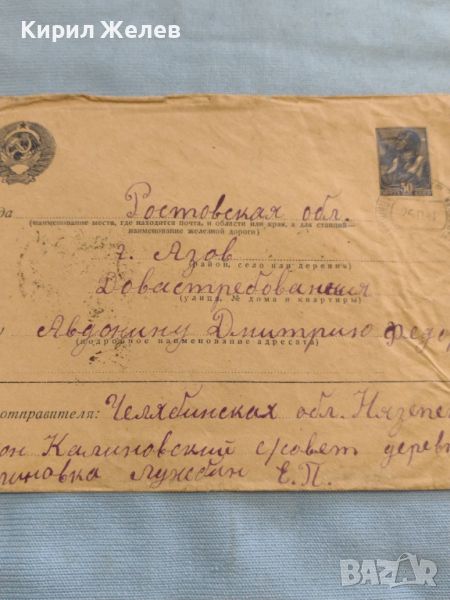 Кирил Желев
да
Ростовская обл.
(наименование места, где находится почта, и области или края, а для станций—
наименование железной дороги)
г. Азов
(район, село или деревня)
Довастребования
(улица, № дома и квартиры)
Авдонину Дмитрию Федор
(подробное наименование адресата)
отправителя: Челябинская обл. Нязепе
он Калиновский с/совет деревн
иновка Е.П.
30
BAZAR